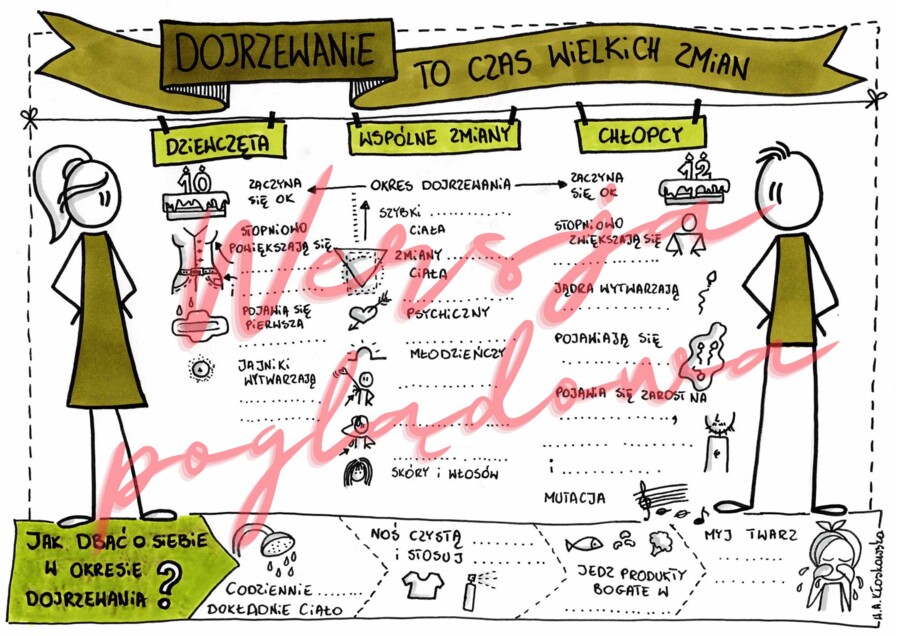 DOJRZEWANIE TO CZAS WIELKICH ZMIAN
DZIEWCZĘTA
10
ZACZYNA
SIĘ OK
STOPNIOWO
POWIĘKSZAJĄ SIĘ
..................
i ..................
POJAWIA SIĘ
PIERWSZA
..................
JAJNIKI
WYTWARZAJĄ
..................
..................
WSPÓLNE ZMIANY
OKRES DOJRZEWANIA
SZYBKI ..................
CIAŁA
ZMIANY ..................
CIAŁA
..................
PSYCHICZNY
..................
MŁODZIEŃCZY
..................
..................
..................
SKÓRY i WŁOSÓW
CHŁOPCY
12
ZACZYNA
SIĘ OK
STOPNIOWO
ZWIĘKSZAJĄ SIĘ
..................
JĄDRA WYTWARZAJĄ
..................
POJAWIAJĄ SIĘ
..................
POJAWIA SIĘ ZAROST NA
..................,
..................
i ..................
MUTACJA
..................
Wersja
poglądowa
JAK DBAĆ O SIEBIE
W OKRESIE
DOJRZEWANIA ?
CODZIENNIE ........
DOKŁADNIE CIAŁO
NOŚ CZYSTĄ ..................
i STOSUJ ..................
JEDZ PRODUKTY
BOGATE W
..................
MYJ TWARZ
..................